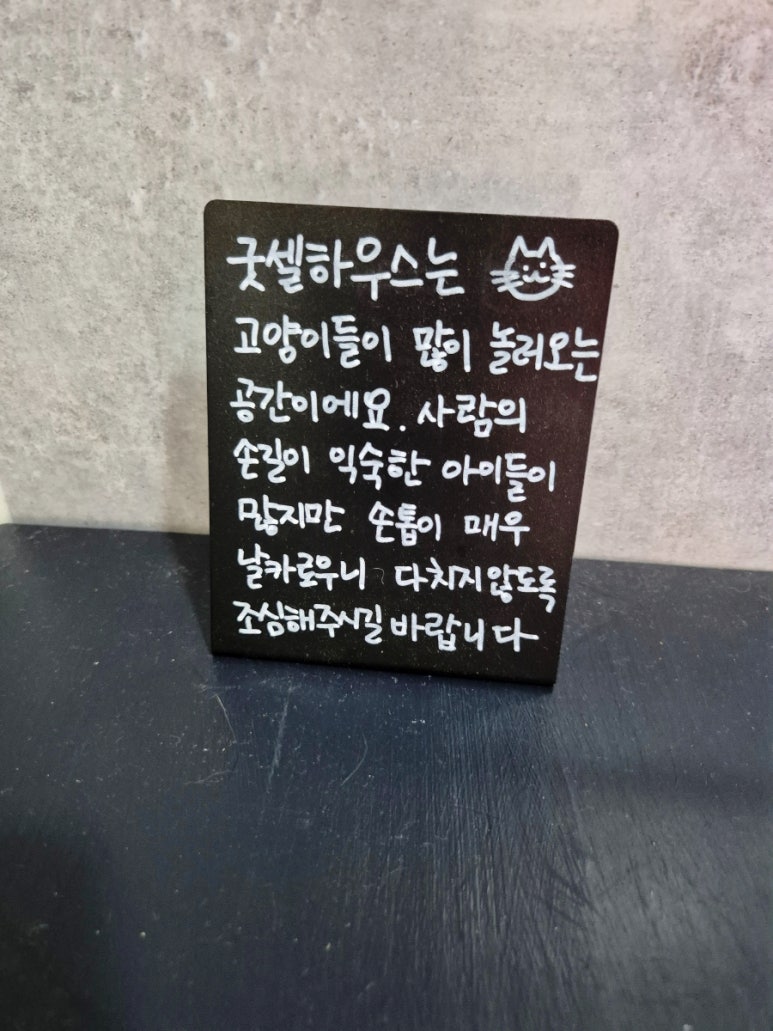 굿셀하우스는
고양이들이 많이 놀러오는
공간이에요. 사람의
손길이 익숙한 아이들이
많지만 손톱이 매우
날카로우니 다치지않도록
조심해주시길 바랍니다